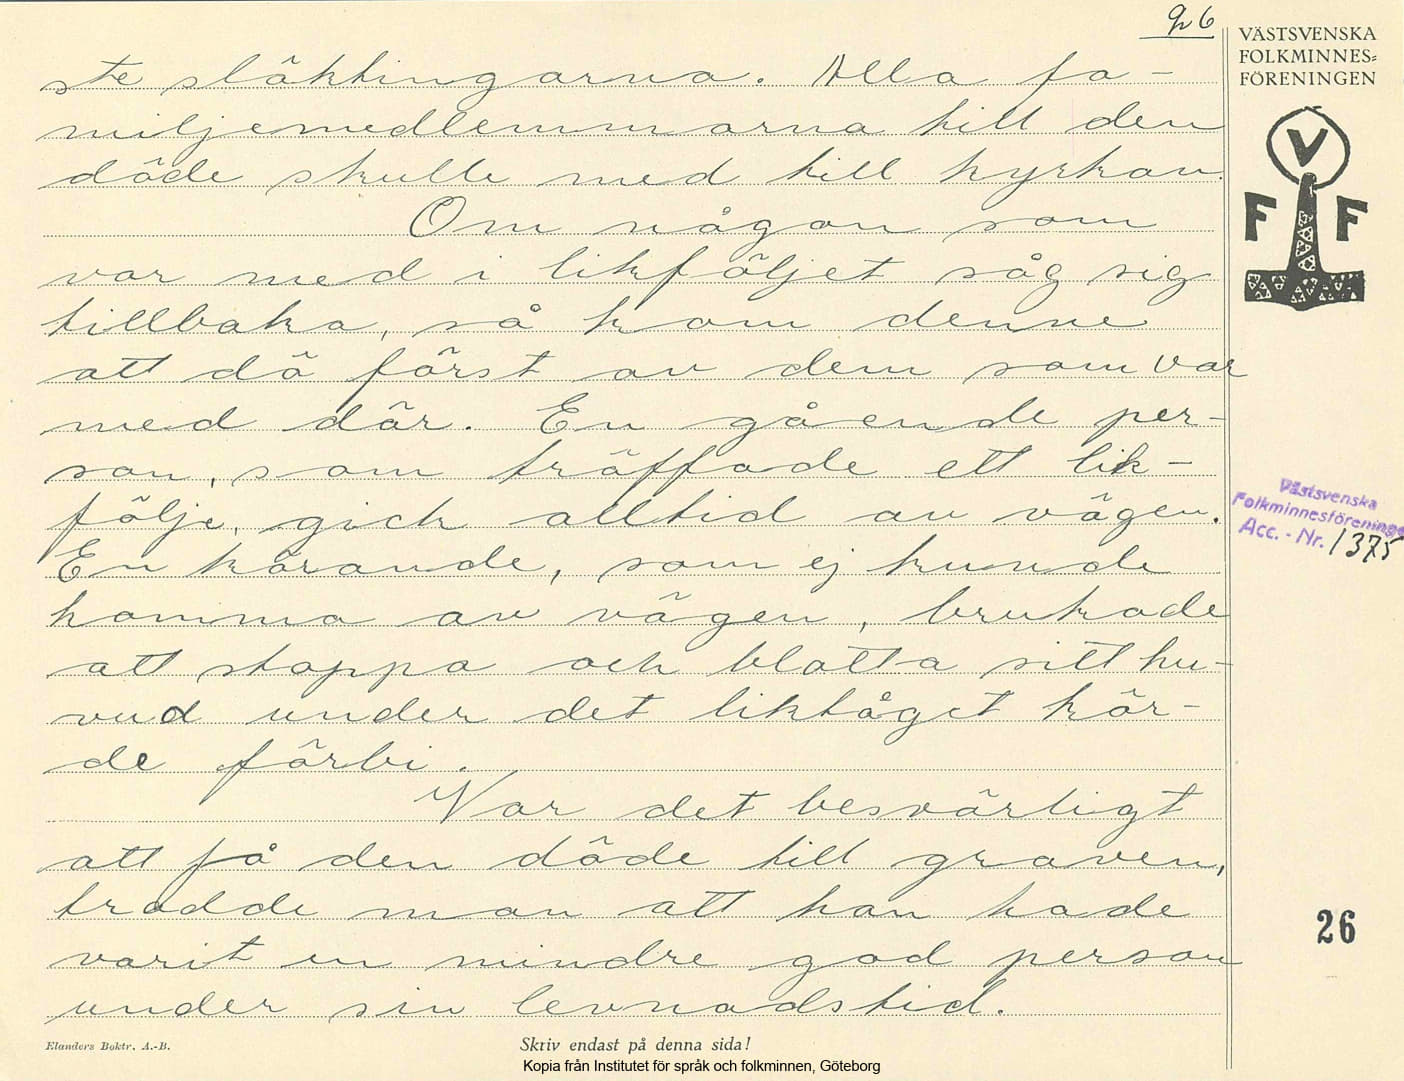 26
VÄSTSVENSKA
FOLKMINNES=
FÖRENINGEN
V
F F
ste släktingarna. Alla fa-
miljemedlemmarna till den
döde skulle med till kyrkan.
Om någon som
var med i likföljet såg sig
tillbaka, så kom denne
att dö först av dem som var
med där. En gående per-
son, som träffade ett lik-
följe, gick alltid av vägen.
En körande, som ej kunde
komma av vägen, brukade
att stoppa och blotta sitt hu-
vud under det liktåget kör-
de förbi.
Var det besvärligt
att få den döde till graven,
trodde man att han hade
varit en mindre god person
under sin levnadstid.
Västsvenska
Folkminnesföreninge
Acc. - Nr. 1375
26
Elanders Boktr. A.-B.
Skriv endast på denna sida!
Kopia från Institutet för språk och folkminnen, Göteborg